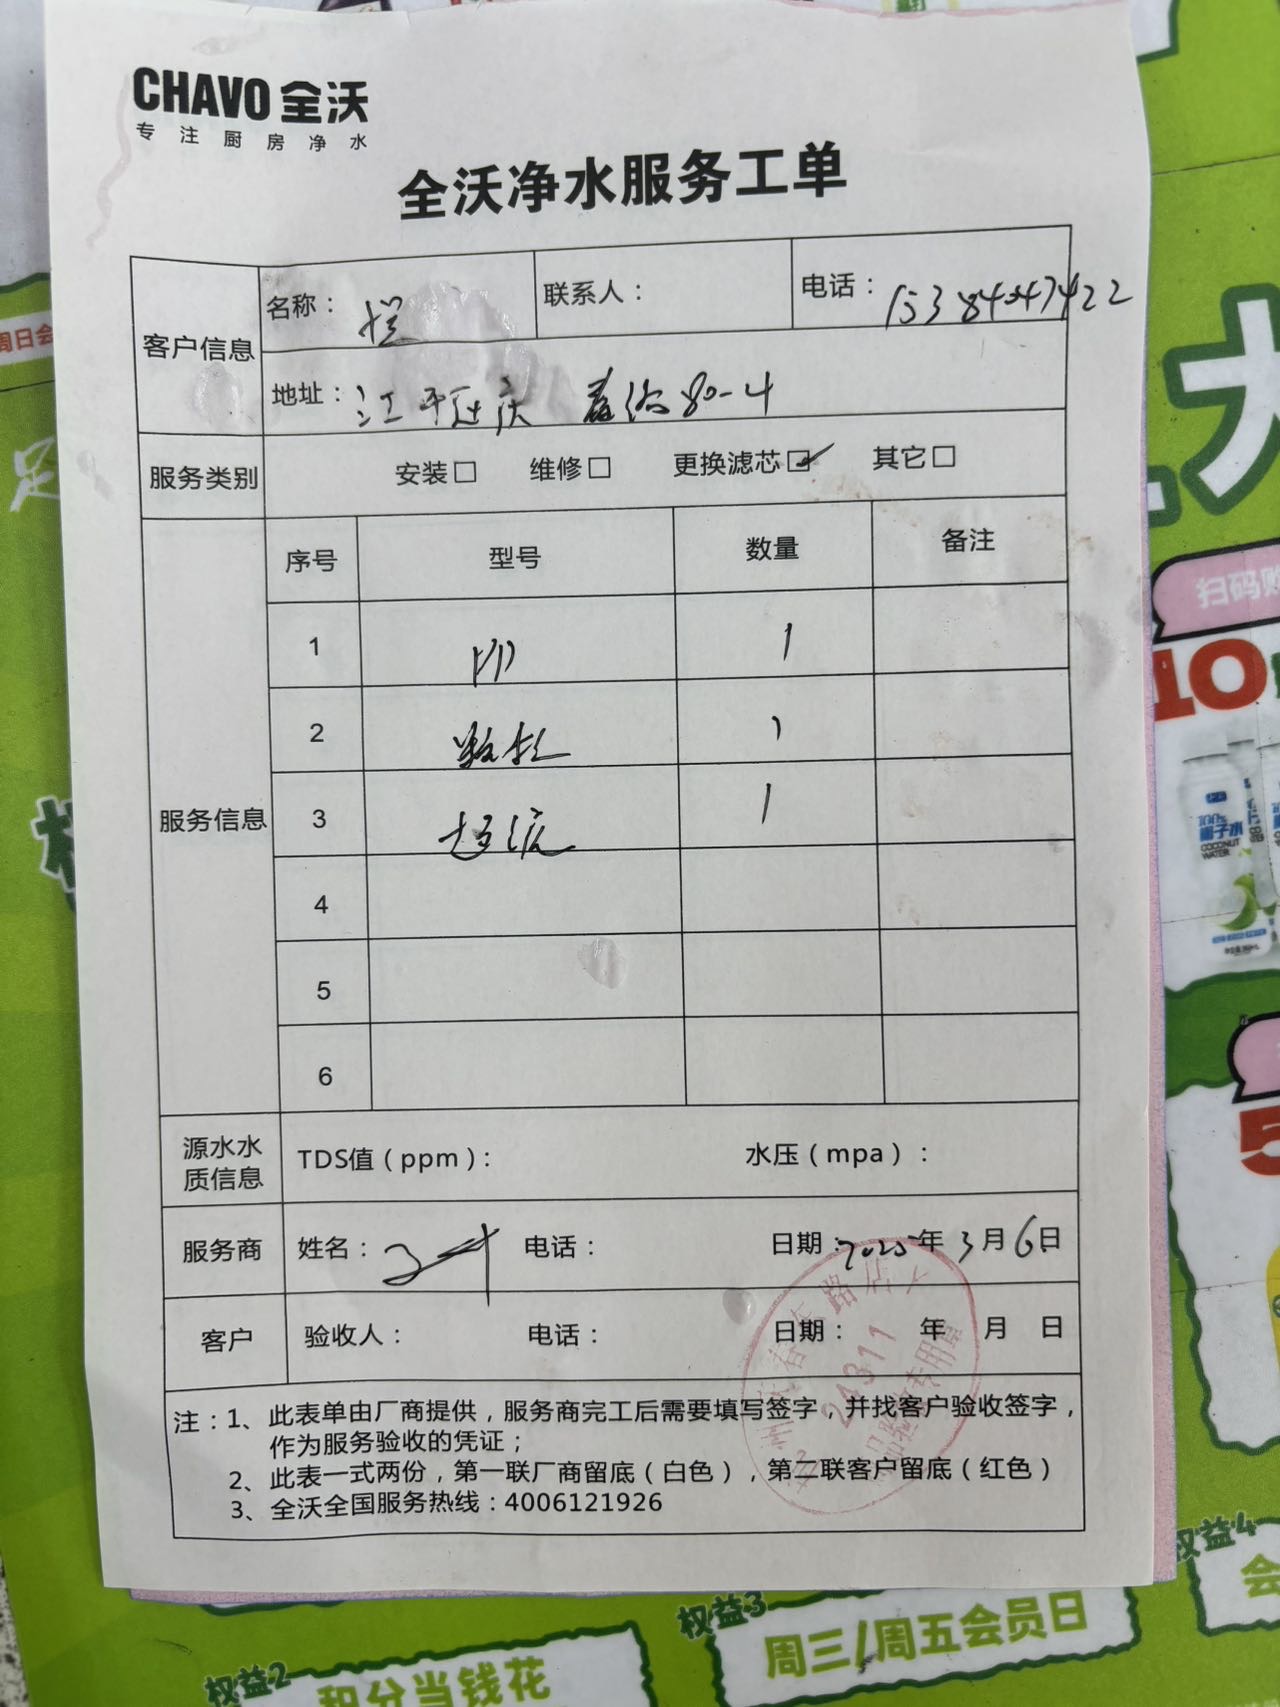 CHAVO 全沃
专注厨房净水
全沃净水服务工单
客户信息
名称：
联系人：
电话：
地址： 80-4
服务类别 安装□ 维修□ 更换滤芯☑ 其它□
服务信息
序号 型号 数量 备注
1 PP 1
2 1
3 1
4
5
6
源水水质信息 TDS值（ppm）： 水压（mpa）：
服务商 姓名： 电话： 日期：2025年3月6日
客户 验收人： 电话： 日期： 年 月 日
24311
注：1、此表单由厂商提供，服务商完工后需要填写签字，并找客户验收签字，
作为服务验收的凭证；
2、此表一式两份，第一联厂商留底（白色），第二联客户留底（红色）
3、全沃全国服务热线：4006121926
周日会
扫码购
10
100%
椰子水
COCONUT
WATER
5
权益4
会
权益3
周三/周五会员日
权益2
积分当钱花